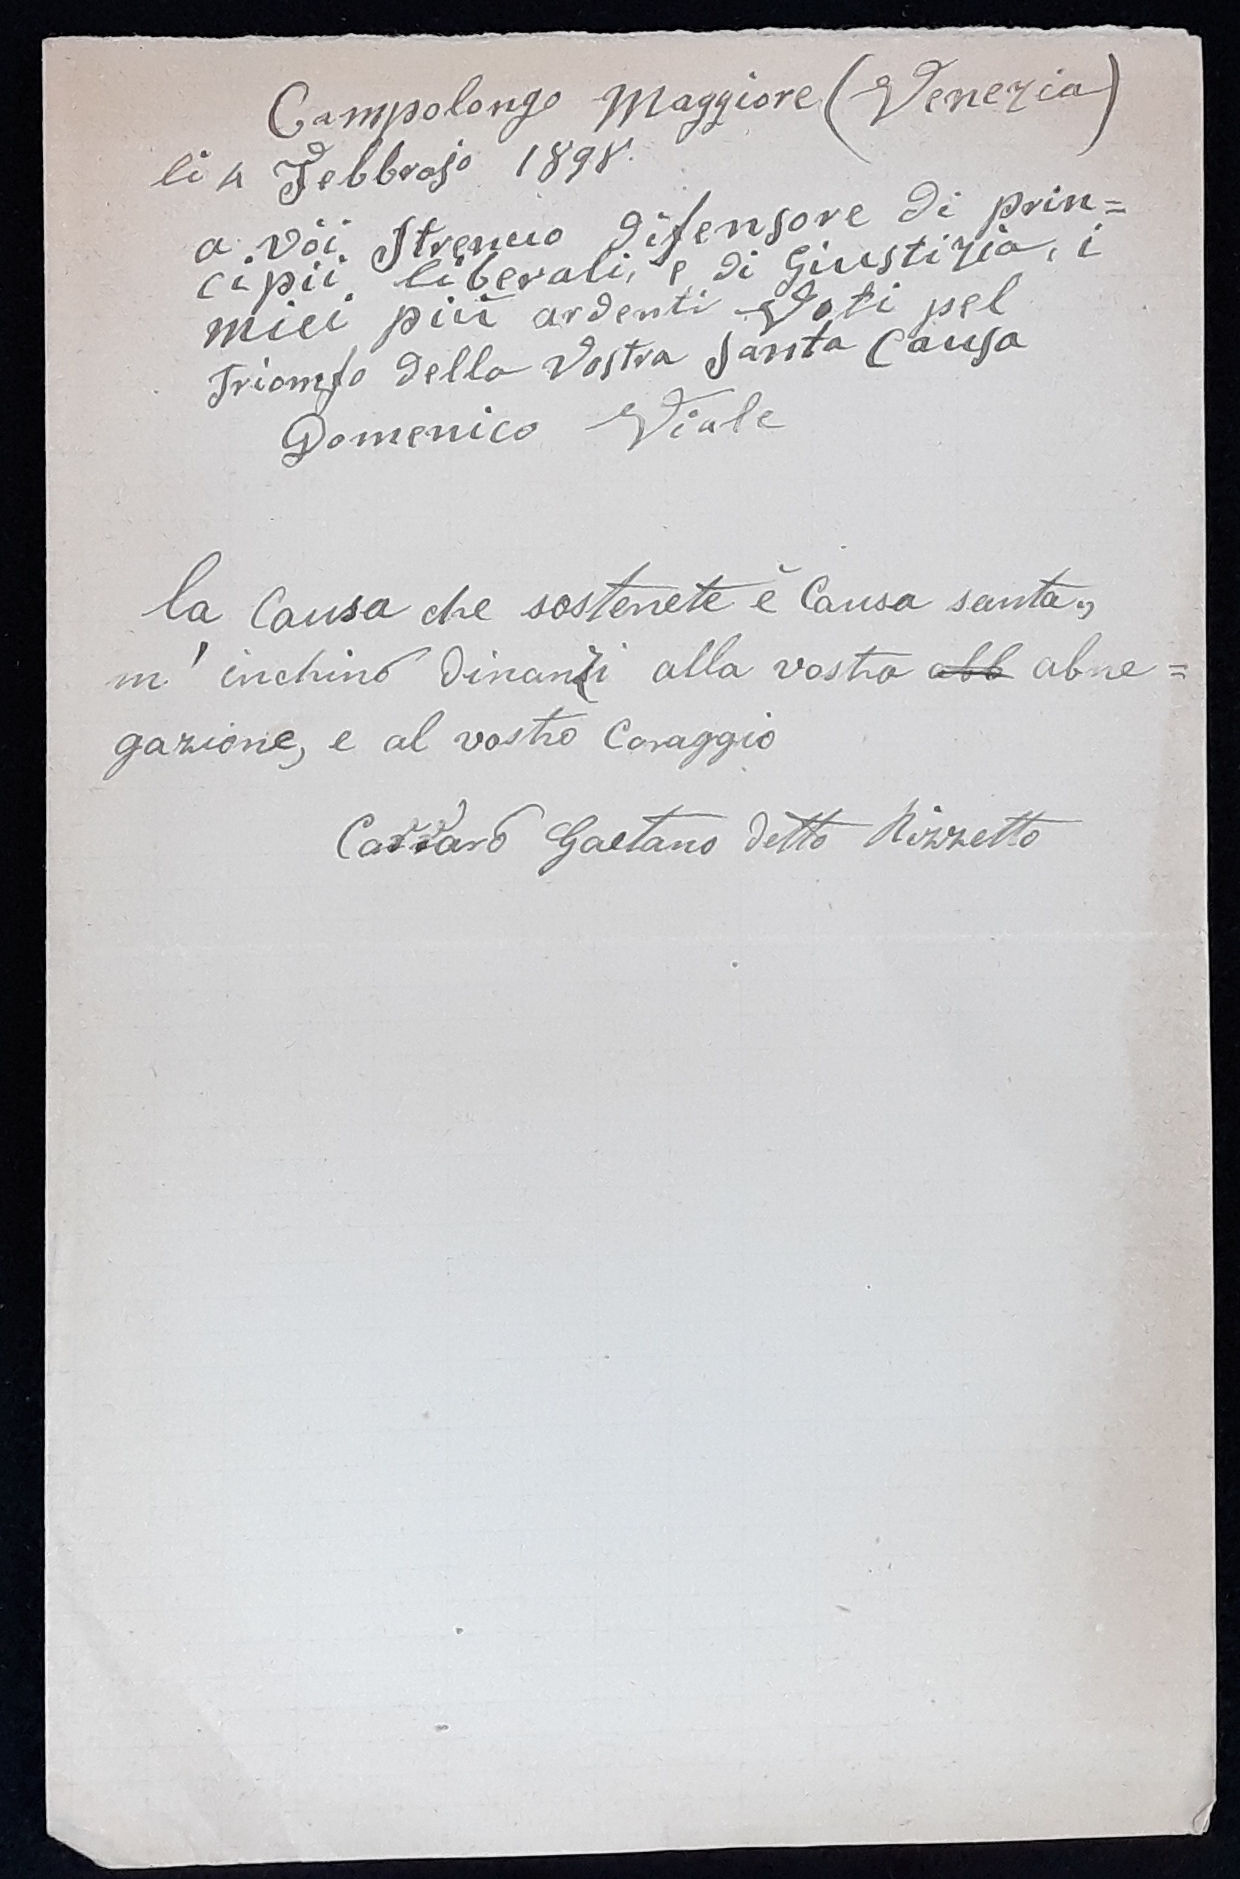 Campolongo Maggiore (Venezia)
li 4 Febbrajo 1898.
a voi Strenuo difensore di prin=
cipii liberali, e di Giustizia, i
miei più ardenti Voti pel
Trionfo della Vostra Santa Causa
Domenico Viale
la Causa che sostenete è Causa santa,
m'inchino dinanzi alla vostra abb abne=
gazione, e al vostro Coraggio
Carraro Gaetano detto Rizzetto